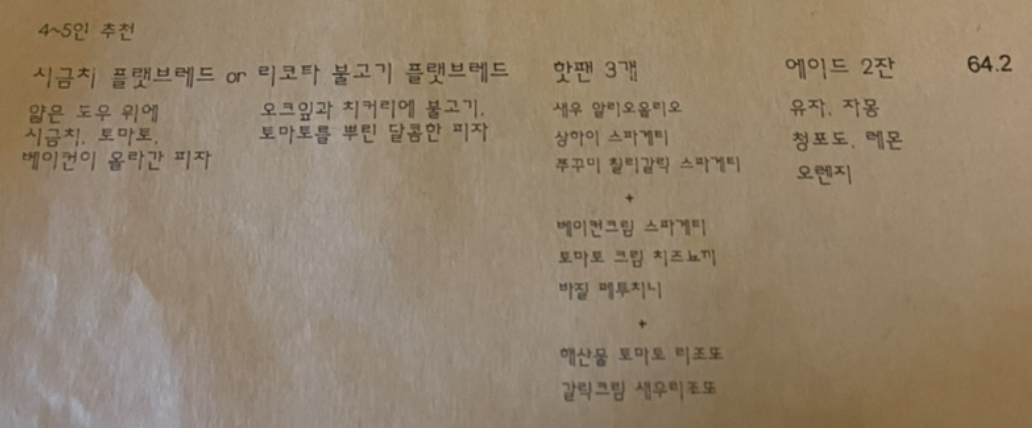 4~5인 추천
시금치 플랫브레드 or 리코타 불고기 플랫브레드
얇은 도우 위에
시금치, 토마토,
베이컨이 올라간 피자
오크잎과 치커리에 불고기,
토마토를 뿌린 달콤한 피자
핫팬 3개
새우 알리오올리오
상하이 스파게티
쭈꾸미 칠리갈릭 스파게티
+
베이컨크림 스파게티
토마토 크림 치즈뇨끼
바질 페투치니
+
해산물 토마토 리조또
갈릭크림 새우리조또
에이드 2잔
유자, 자몽
청포도, 레몬
오렌지
64.2